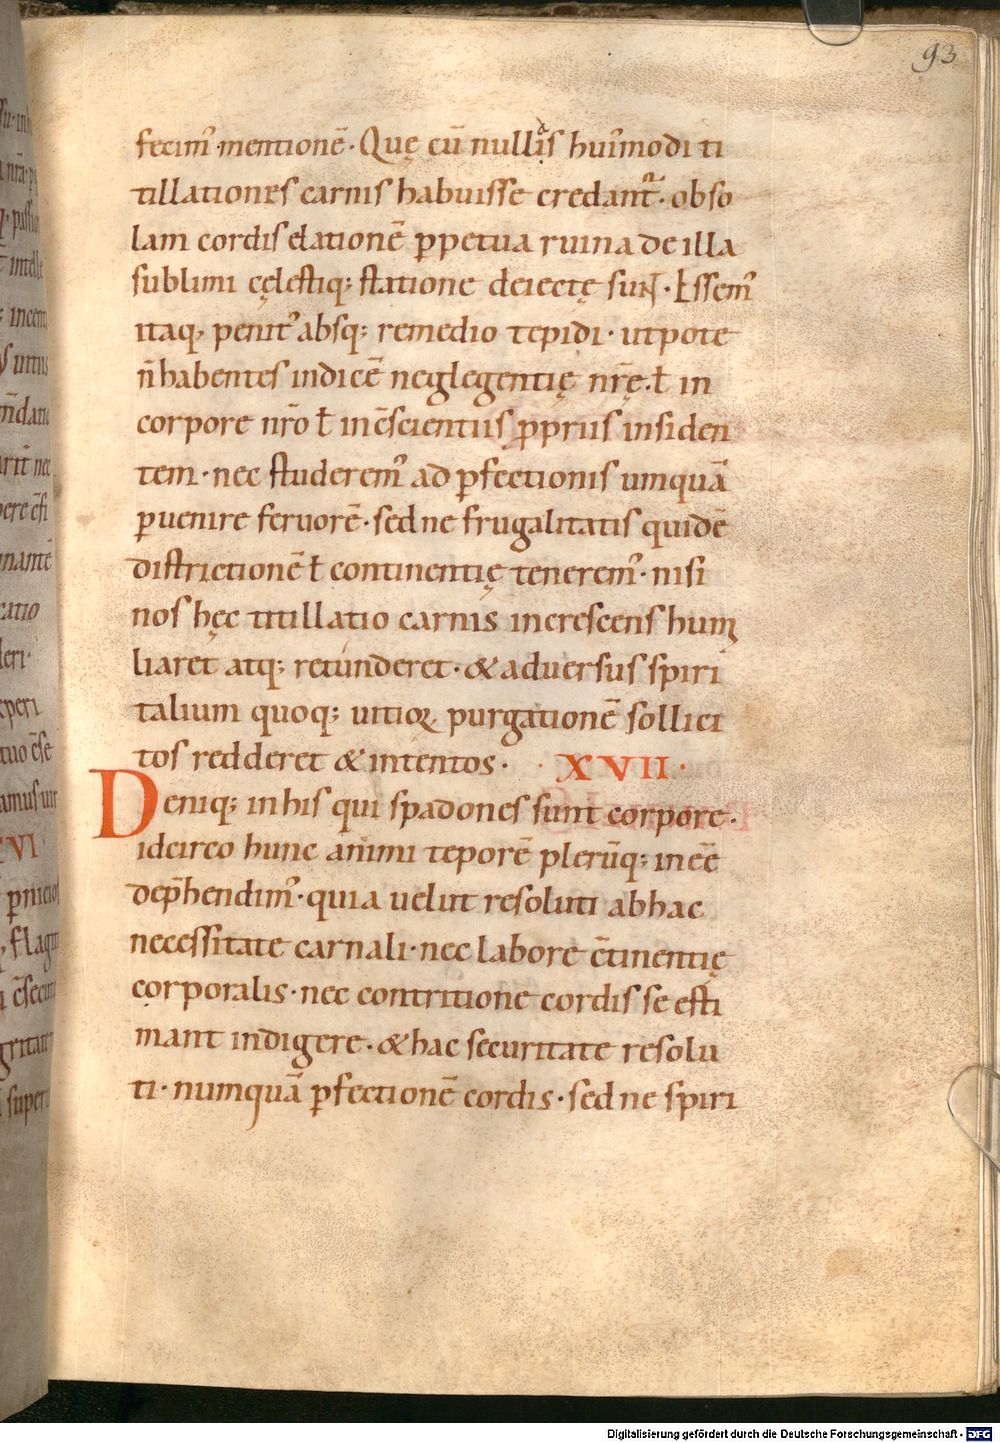 93
fecim᾿ mentionē. Quę cū nullis huı᾿modi ti
tillationes carnis habuisse credant᷑. obso
lam cordis elationē ꝑpetua ruina de illa
sublimi cęlestiq; statione deiectę sunt. Essem᾿
itaq; penit᾿ absq; remedio tepidi. utpote
n̄ habentes indicē neglegentię nr̄ę. ł in
corpore nr̄o ł in c̄scientiis ꝓpriis insiden
tem. nec studerem᾿ ad ꝑfectionis umquā
ꝑuenire feruorē. sed ne frugalitatis quidē
districtionē ł continentię tenerem᾿. nisi
nos hęc titillatio carnis increscens humi
liaret atq; retunderet. & aduersus spiri
talium quoq; uitioꝝ purgationē sollici
tos redderet & intentos. · XVII ·
Deniq; in his qui spadones sunt corpore.
idcirco hunc animi teporē plerūq; inēē
dep̄hendim᾿. quia uelut resoluti ab hac
necessitate carnali. nec labore c̄tinentię
corporalis. nec contritione cordis se esti
mant indigere. & hac securitate resolu
ti. numquā ꝑfectionē cordis. sed ne spiri
Digitalisierung gefördert durch die Deutsche Forschungsgemeinschaft - DFG